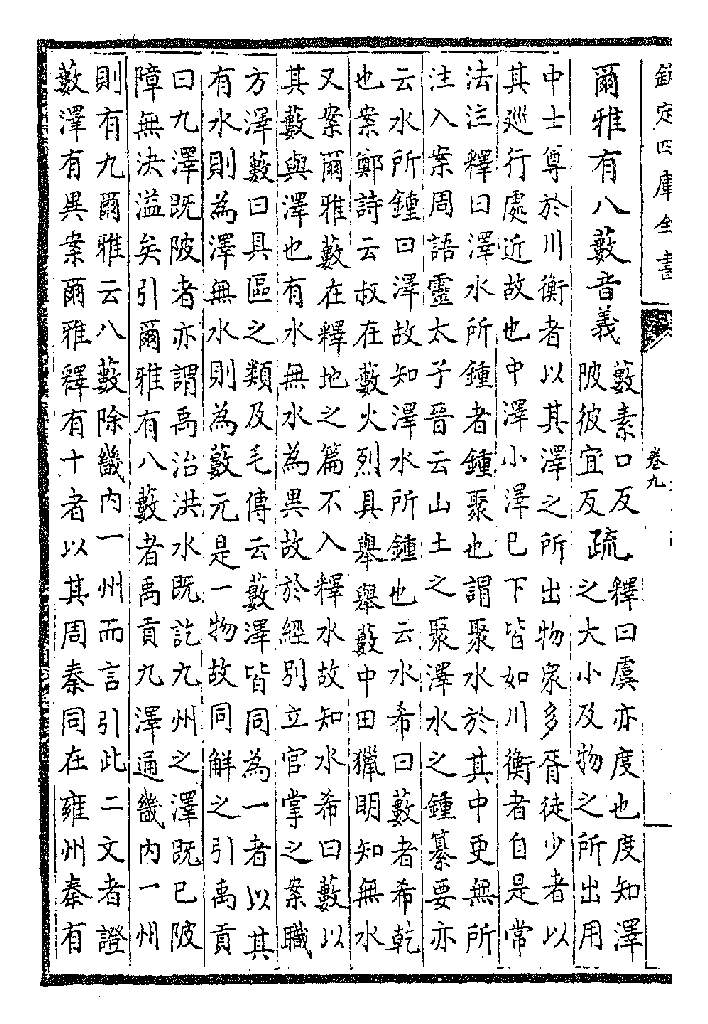 欽定四庫全書
卷九
爾雅有八藪音義
藪素口反
陂彼宜反
疏
釋曰虞亦度也度知澤
之大小及物之所出用
中士尊於川衡者以其澤之所出物衆多胥徒少者以
其巡行處近故也中澤小澤已下皆如川衡者自是常
法注釋曰澤水所鍾者鍾聚也謂聚水於其中更無所
注入案周語靈太子晉云山土之聚澤水之鍾纂要亦
云水所鍾曰澤故知澤水所鍾也云水希曰藪者希乾
也案鄭詩云叔在藪火烈具舉舉藪中田獵明知無水
又案爾雅藪在釋地之篇不入釋水故知水希曰藪以
其藪與澤也有水無水為異故於經別立官掌之案職
方澤藪曰具區之類及毛傳云藪澤皆同為一者以其
有水則為澤無水則為藪元是一物故同解之引禹貢
曰九澤既陂者亦謂禹治洪水既訖九州之澤既已陂
障無決溢矣引爾雅有八藪者禹貢九澤通畿內一州
則有九爾雅云八藪除畿內一州而言引此二文者證
藪澤有異案爾雅釋有十者以其周秦同在雍州秦有